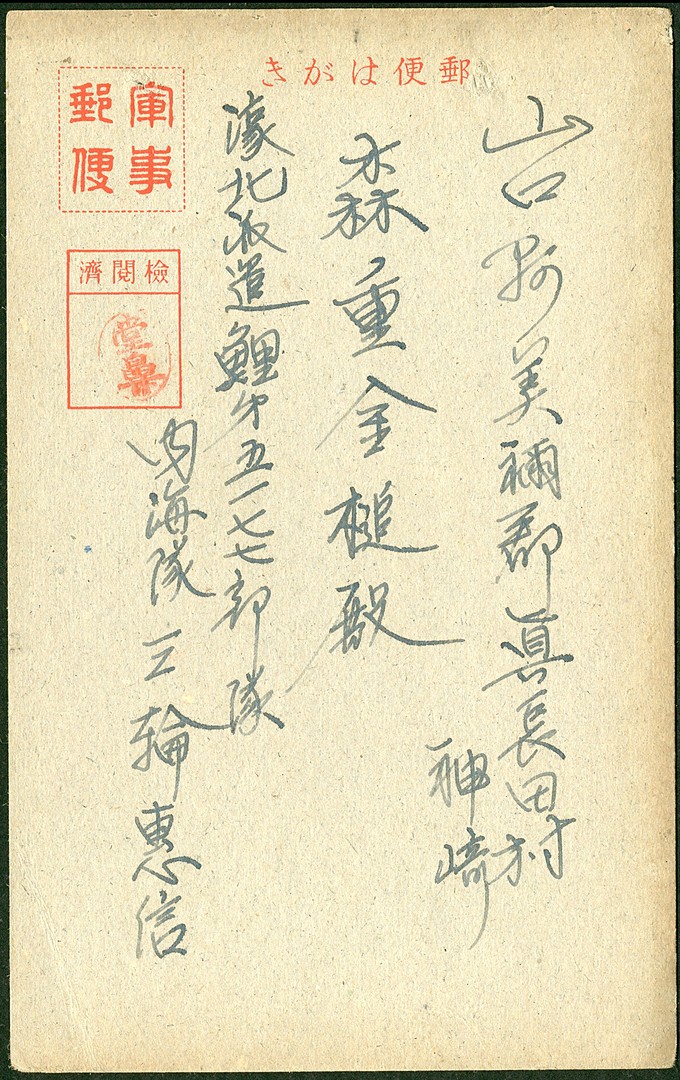 郵便はがき
山口縣美禰郡眞長田村
神崎
森重金槌殿
濠北派遣鯉第五一七七部隊
内海隊三輪惠信
軍事
郵便
檢閲濟